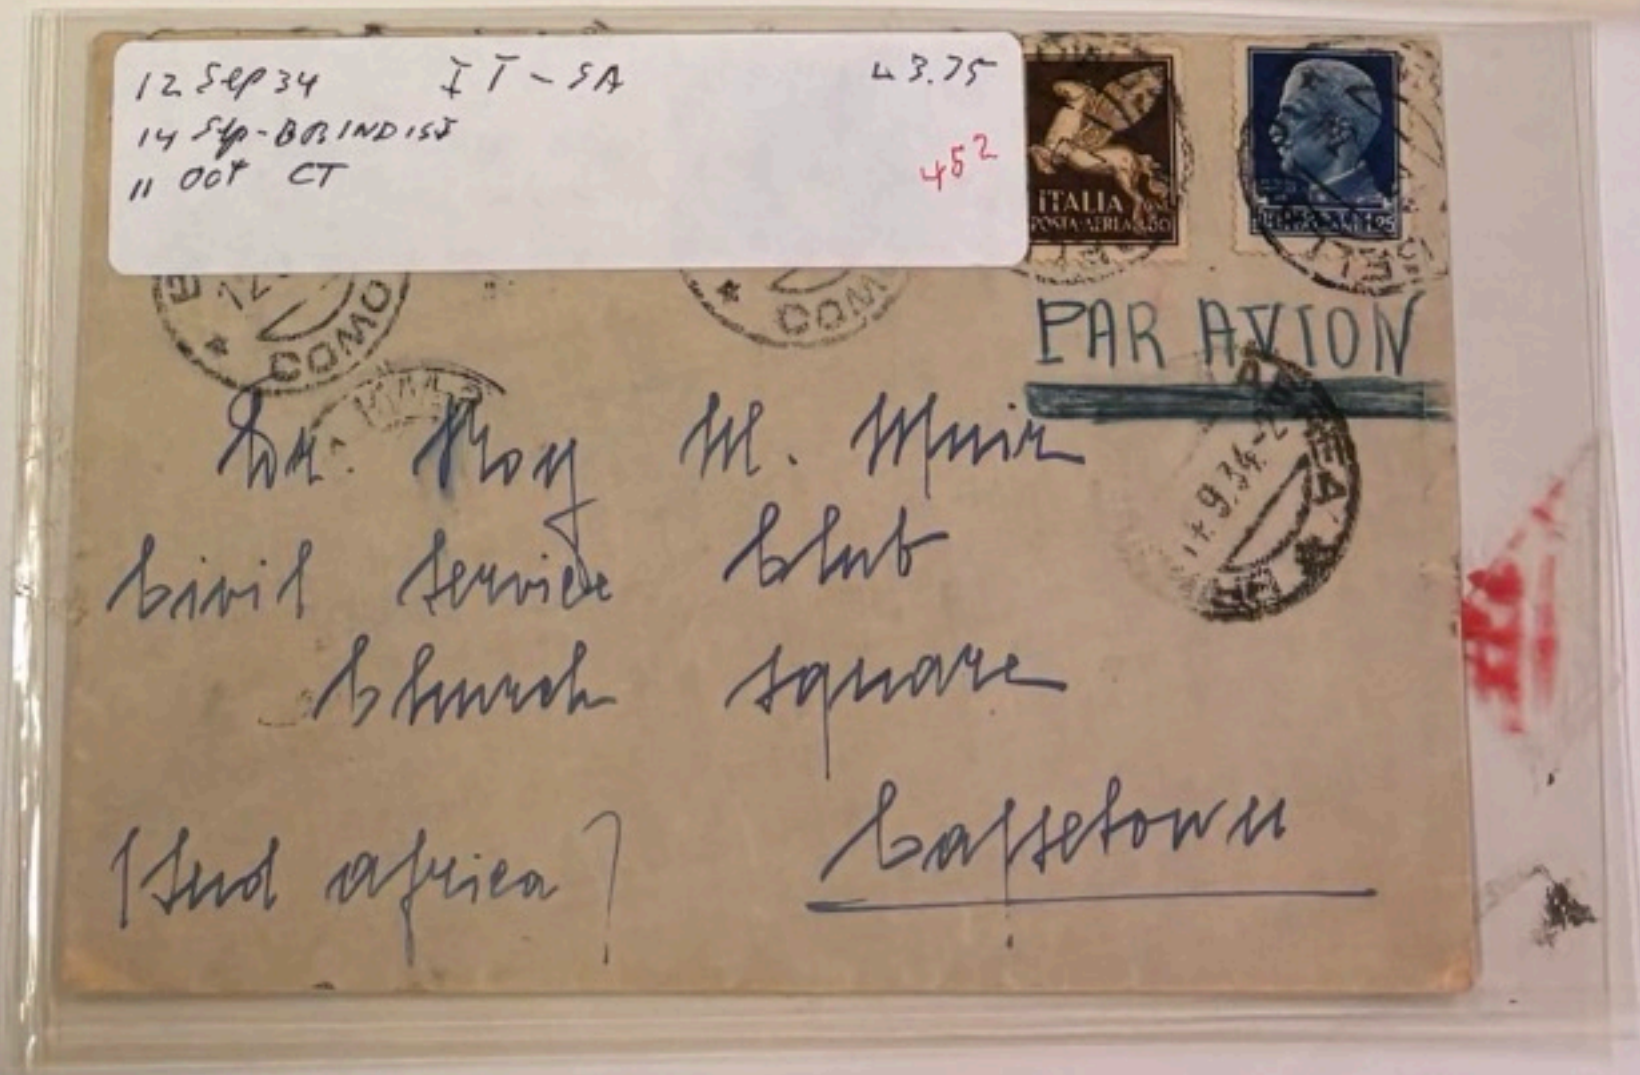 12 Sep 34 IT - SA L 3.75
14 Sep - BRINDISI
11 Oct CT
45²
ITALIA
POSTA AEREA
COMO
COMO
PAR AVION
9.34
Dr. Roy M. Muir
Civil Service Club
Church Square
Cappetown
(Sud Africa)